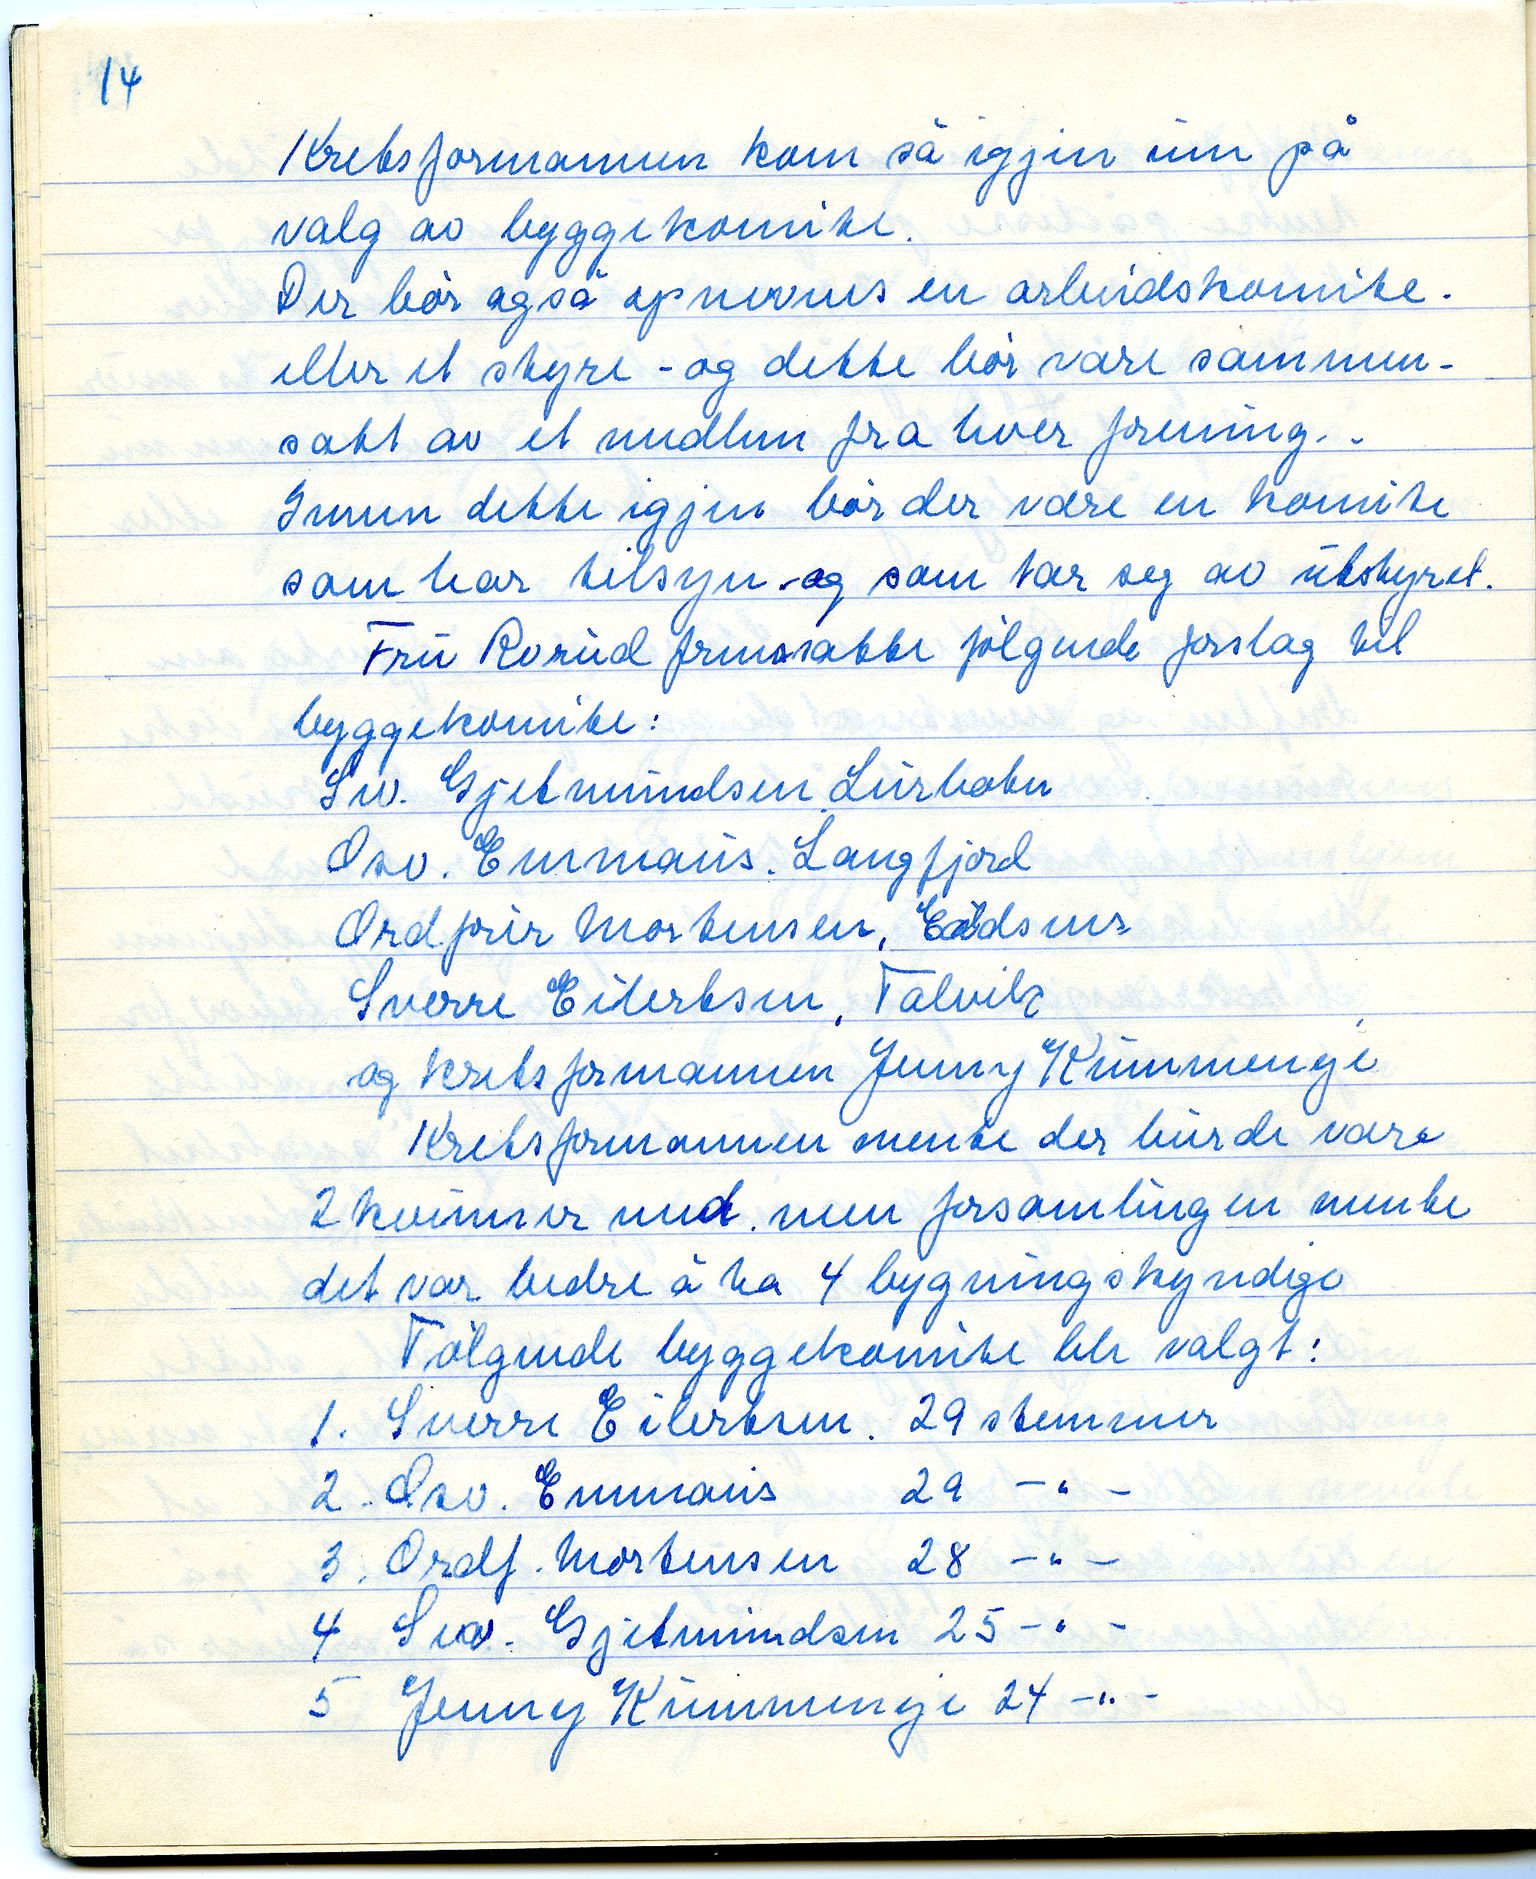 14
Kretsformannen kom så igjen inn på
valg av byggekomite.
Der bør også opnevnes en arbeidskomite.
eller et styre - og dette bør være sammen-
satt av et medlem fra hver forening.
Innen dette igjen bør der være en komite
som har tilsyn - og som tar seg av utstyret.
Fru Rorud fremsatte følgende forslag til
byggekomite:
Sev. Gjetmundsen, Lerbotn
Osv. Emmaus. Langfjord
Ordfører Mortensen,
Sverre Eilertsen, Talvik
og kretsformannen Jenny Kummenje
Kretsformannen mente der burde være
2 kvinner med. men forsamlingen mente
det var bedre å ha 4 bygningskyndige
Følgende byggekomite ble valgt:
1. Sverre Eilertsen. 29 stemmer
2. Osv. Emmaus 29 -"-
3. Ordf. Mortensen 28 -"-
4 Sev. Gjetmundsen 25 -"-
5 Jenny Kummenje 24 -"-